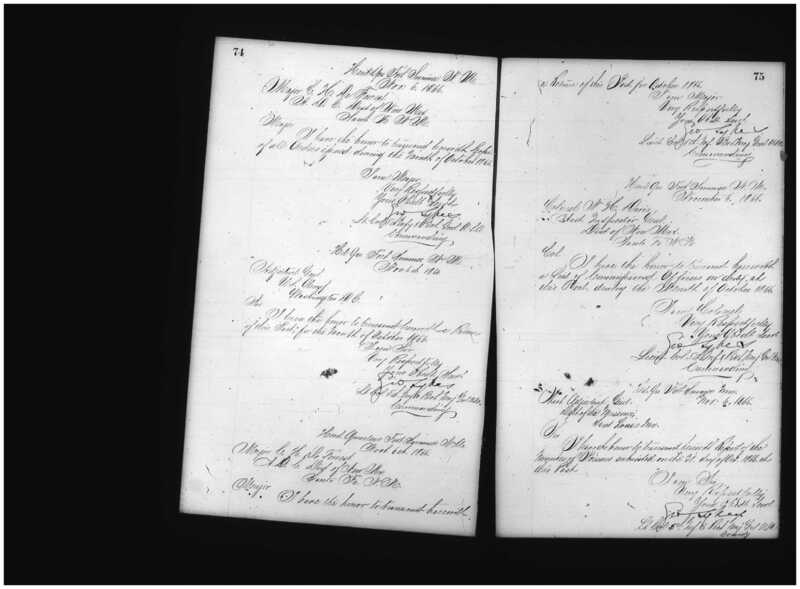 74
Head Qrs Fort Sumner N. M.
Nov. 6, 1866.
Major C. H. De Forest
A. D. C. Dept of New Mex
Santa Fe N. M.
Major
I have the honor to transmit herewith Copies
of all Orders issued during the Month of October 1866.
I am Major
Very Respectfully
Your Obdt Servt
Geo Sykes
Lt Col 5th Infy & Bvt Maj Genl U.S.A.
Commanding
Hd. Qrs Fort Sumner N. M.
Nov 6th 1866
Adjutant Genl
U.S. Army
Washington D.C.
Sir
I have the honor to transmit herewith a Return
of this Post for the Month of October 1866.
I am Sir
Very Respectfully
Your Obedt Servt
Geo Sykes
Lt Col 5th Infy & Bvt Maj Genl U.S.A.
Commanding
Head Quarters Fort Sumner N. M.
Nov 6th 1866
Major C. H. De Forest
A. D. C. Dept of New Mex
Santa Fe N. M.
Major
I have the honor to transmit herewith
75
a Return of this Post for October 1866.
I am Major
Very Respectfully
Your Obdt Servt
Geo Sykes
Lieut Col 5th Inf. & Bvt Maj Genl U.S.A.
Commanding
Head Qrs Fort Sumner N. M.
November 6, 1866.
Colonel
Asst Inspector Genl
Dept of New Mex.
Santa Fe N. M.
Col.
I have the honor to transmit herewith
a List of Commissioned Officers on duty at
this Post, during the Month of October 1866
I am Colonel
Very Respectfully
Your Obdt Servt
Geo Sykes
Lieut Col 5th Infy & Bvt Maj Gen U.S.A.
Commanding
Hd. Qrs Fort Sumner N.M.
Nov. 6, 1866.
Asst Adjutant Genl
Dept of the Missouri
Saint Louis Mo.
Sir
I have the honor to transmit herewith Report of the
Number of Prisoners on the 31 day of Oct. 1866 at
this Post.
I am Sir
Very Respectfully
Your Obdt Servt
Geo Sykes
Lt Col 5th Inf & Bvt Maj Gen U.S.A.